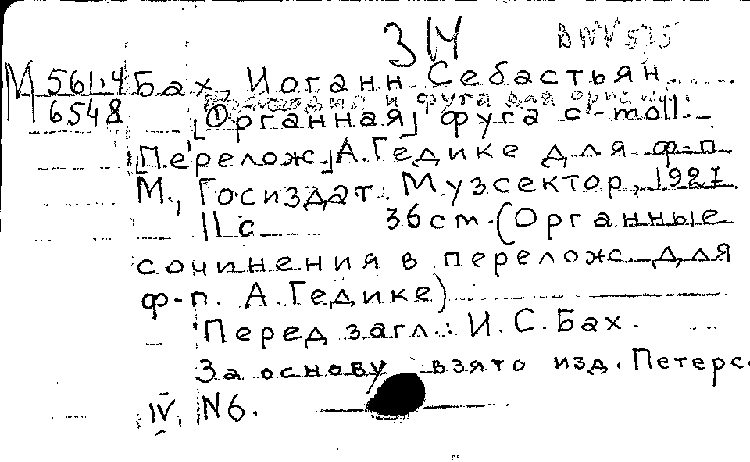 314 BWV 575
М 561.4 Бах, Иоганн Себастьян.
6548 и фуга для
[Органная] фуга c-moll.
[Перелож.] А. Гедике для ф-п
М., Госиздат. Музсектор, 1927.
11 с 36 cm. (Органные
сочинения в перелож. для
ф-п. А. Гедике)
Перед загл.: И. С. Бах.
За основу взято изд. Петерс.
IV, N6.